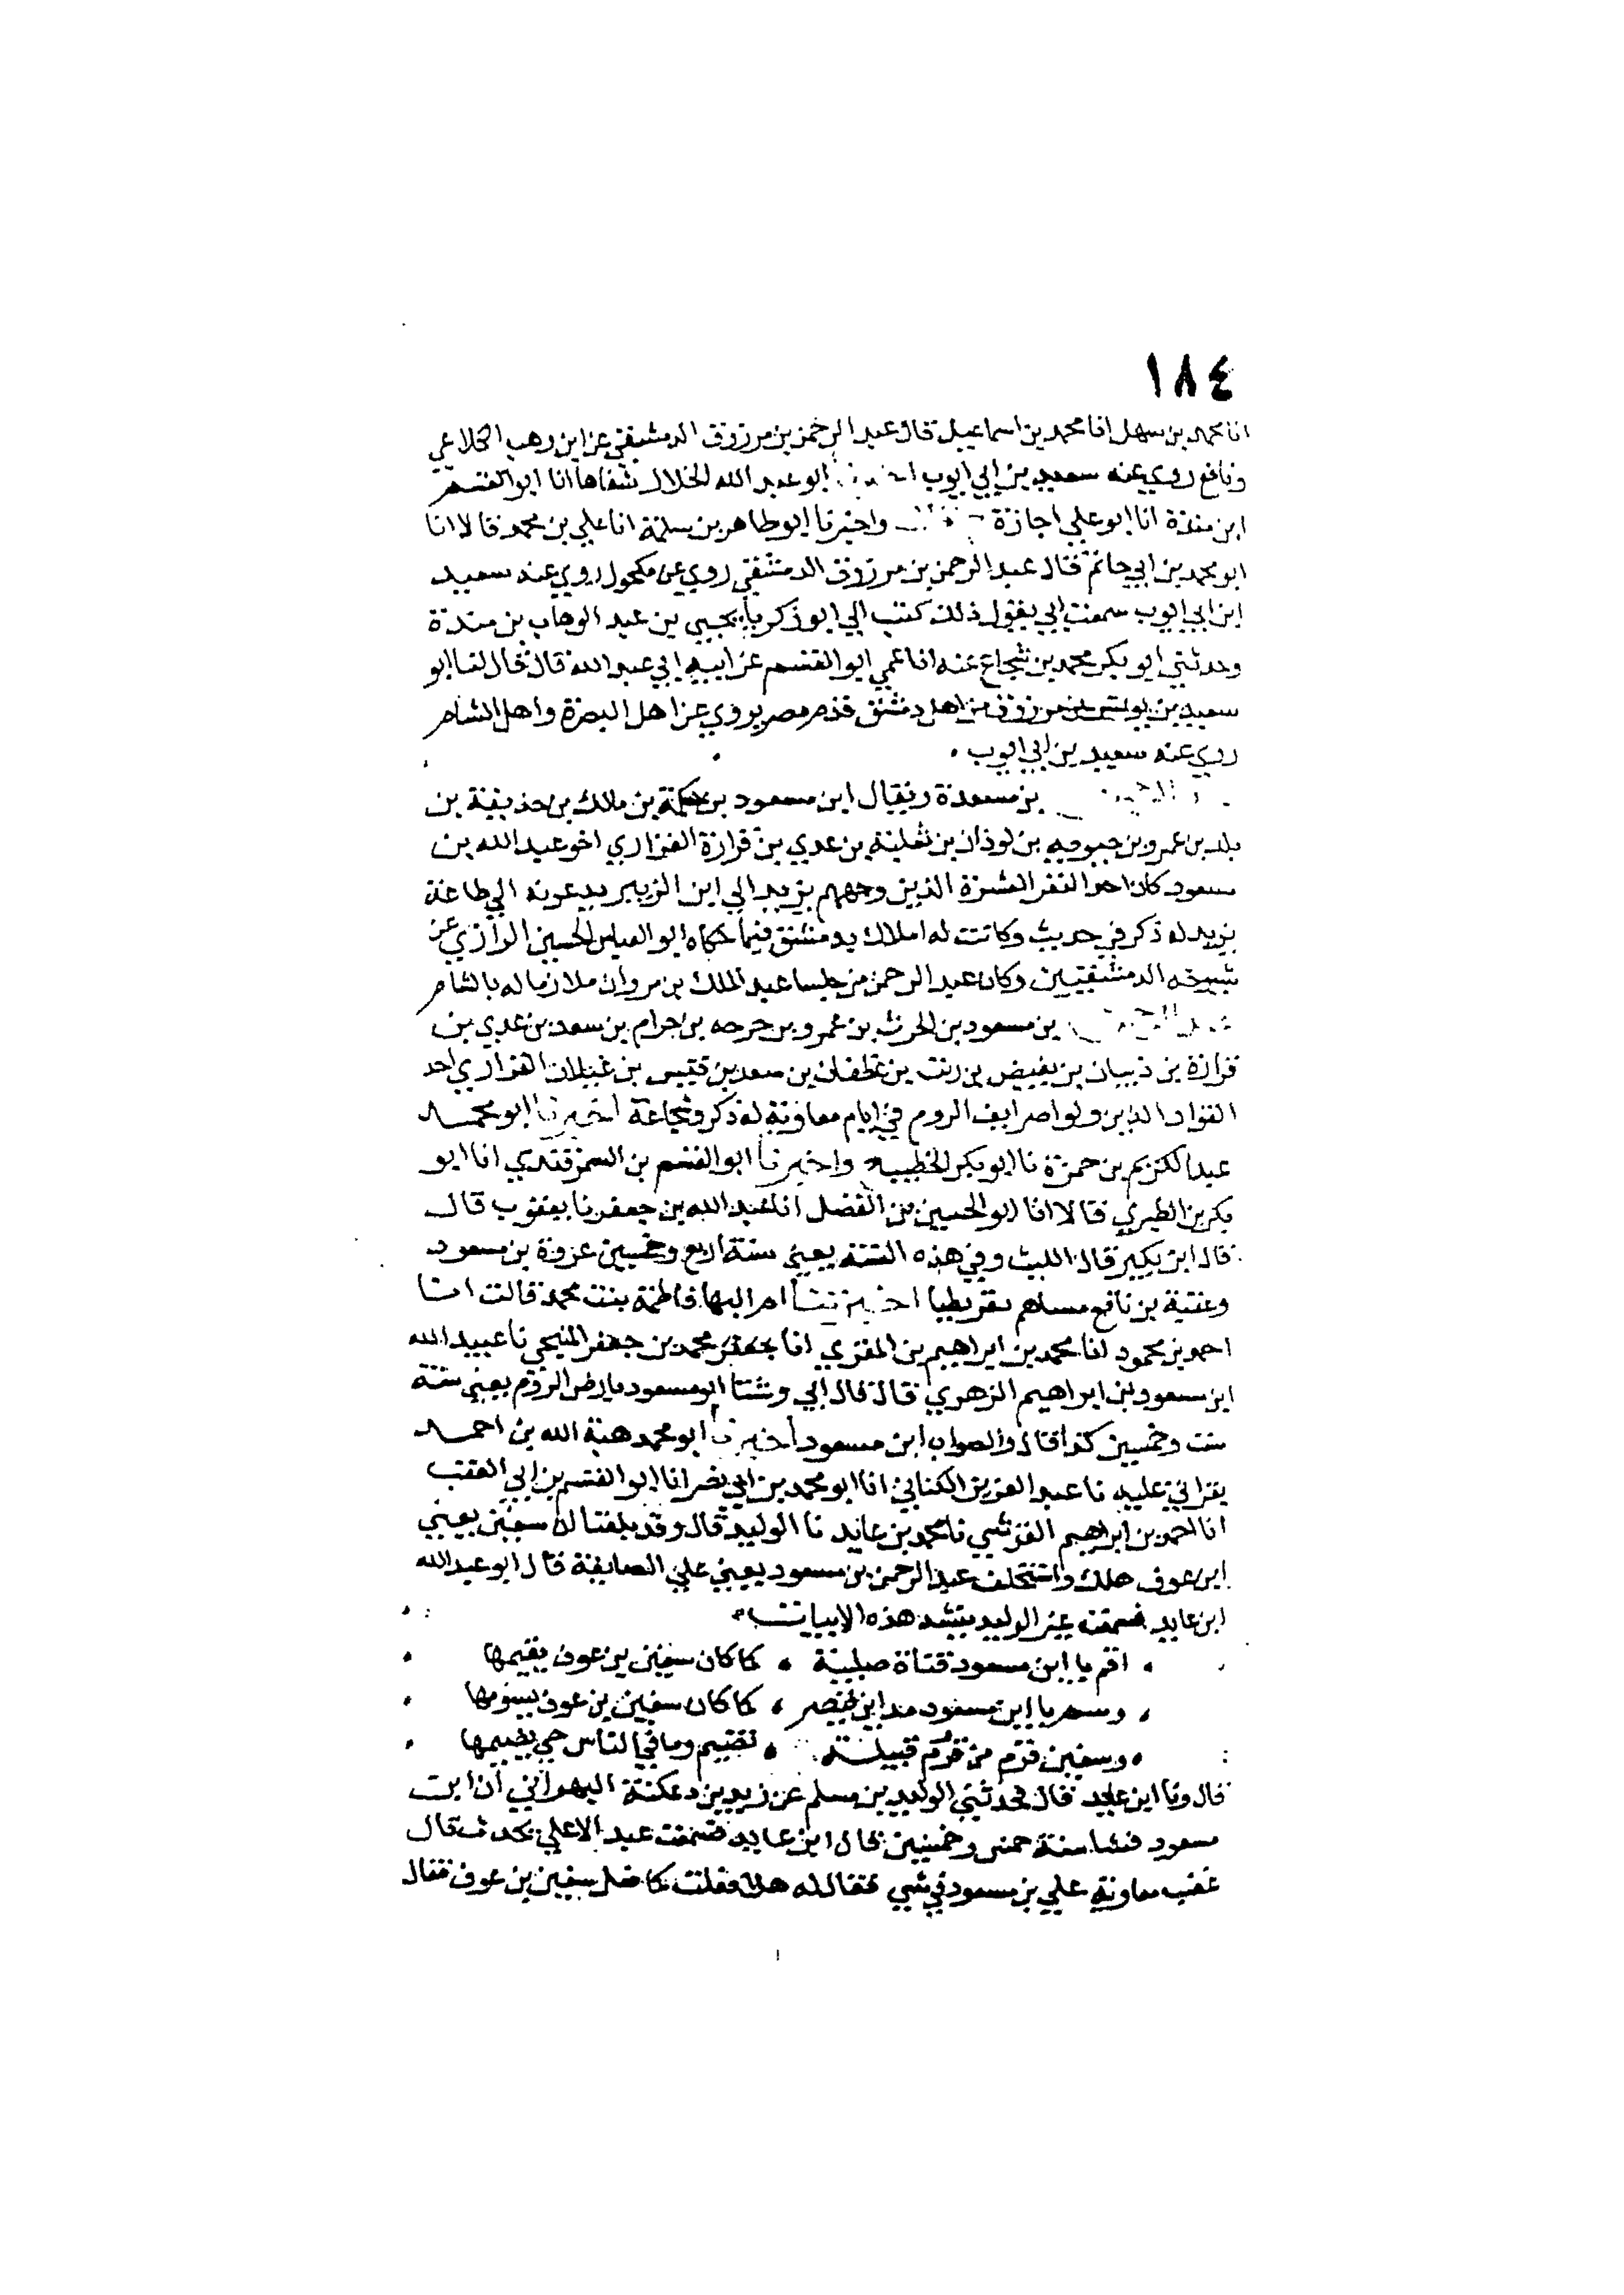 ١٨٤
انا محمد بن سهل انا محمد بن اسماعيل قال عبد الرحمن بن مرزوق الدمشقي عن ابن وهب الكلاعي
ونافع روي عنه سعيد بن ابي ايوب ابو عبد الله الخلال شفاها انا ابو القسم
ابن مندة انا ابو علي اجازة واخبرنا ابو طاهر بن سلمة انا علي بن محمد قالا انا
ابو محمد بن ابي حاتم قال عبد الرحمن بن مرزوق الدمشقي روي عن مكحول روي عنه سعيد
ابن ابي ايوب سمعت ابي يقول ذلك كتب الي ابو زكريا يحيي بن عبد الوهاب بن مندة
وحدثني ابو بكر محمد بن شجاع عنه انا عمي ابو القسم عن ابيه ابي عبد الله قال قال لنا ابو
سعيد بن يونس بن مرزوق من اهل دمشق قدم مصر يروي عن اهل البصرة واهل الشام
روي عنه سعيد بن ابي ايوب
بن مسعدة ويقال ابن مسعود بن حكمة بن مالك بن حذيفة بن
بدر بن عمرو بن جويه بن لوذان بن ثعلبة بن عدي بن فزارة الفزاري اخو عبد الله بن
مسعود كان احد النفر العشرة الذين وجههم يزيد الي ابن الزبير يدعونه الي طاعة
يزيد له ذكر في حديث وكانت له املاك بدمشق فيما حكاه ابو الحسين الرازي عن
شيوخه الدمشقيين وكان عبد الرحمن من جلسا عبد الملك بن مروان ملازما له بالشام
بن مسعود بن الحرث بن عمرو بن حرجه بن حرام بن سعد بن عدي بن
فزارة بن ذبيان بن بغيض بن ريث بن غطفان بن سعد بن قيس بن غيلان الفزاري احد
القواد الذين ولوا صوايف الروم في ايام معاوية له ذكر وشجاعة اخبرنا ابو محمد
عبد الكريم بن حمزة نا ابو بكر الخطيب واخبرنا ابو القسم بن السمرقندي انا ابو
بكر بن الطبري قالا انا ابو الحسين بن الفضل انا عبد الله بن جعفر نا يعقوب قال
قال ابن بكير قال الليث وفي هذه السنة يعني سنة اربع وخمسين غزوة بن مسعود
وعقبة بن نافع اخبرتنا ام البها فاطمة بنت محمد قالت انا
احمد بن محمود انا محمد بن ابراهيم بن المقري انا محمد بن جعفر المنبجي نا عبيد الله
ابن سعد بن ابراهيم الزهري قال قال ابي وشتا ابو مسعود بارض الروم يعني سنة
ست وخمسين كذا قال والصواب ابن مسعود اخبرنا ابو محمد هبة الله بن احمد
بقراتي عليه نا عبد العزيز الكتاني انا ابو محمد بن ابي نصر انا ابو القسم بن ابي العقب
انا احمد بن ابراهيم القرشي نا محمد بن عايد نا الوليد قال وقد بلغنا ان سفين يعني
ابن عوف هلك واستخلف عبد الرحمن بن مسعود يعني علي الصايفة قال ابو عبد الله
ابن عايد فسمعت غير الوليد ينشد هذه الابيات
اقم يا ابن مسعود قناة صليبة كما كان سفين بن عوف يقيمها
وسم يا ابن مسعود كما كان سفين بن عوف يسومها
وسفين قرم من قروم قبيلة تضيم وما في الناس حي يضيمها
قال ونا ابن عايد قال فحدثني الوليد بن مسلم عن زيد بن دعكنة البهراني ان ابن
مسعود فشتا سنة خمس وخمسين قال ابن عايد فسمعت عبد الاعلي يحدث قال
عتب معاوية علي بن مسعود في شي فقال له هلا فعلت كما فعل سفين بن عوف فقال